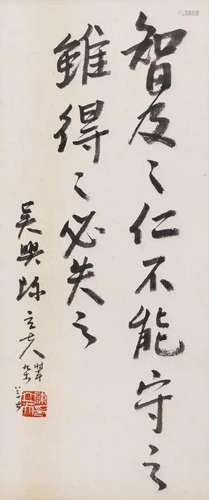 智及之仁不能守之
雖得之必失之
吳興 立夫